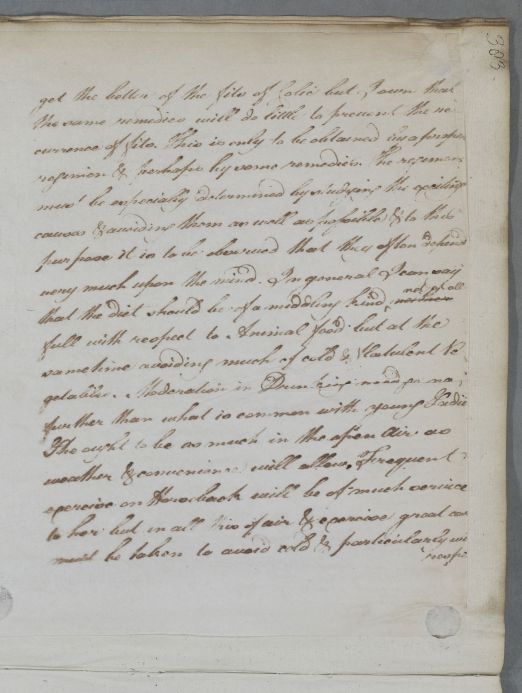 383
get the better of the fits of Colic but I own that
the same remedies will do little to prevent the re
currence of fits. This is only to be obtained by a proper
regimen & perhaps by some remedies. The regimen
must be especially determined by studying the exciting
causes & avoiding them as well as possible & to this
purpose it is to be observed that they often depend
very much upon the mind. In general I can say
that the diet should be of a middling kind not at all
full with respect to Animal food but at the
same time avoiding much of cold & flatulent Ve
getables. Moderation in Drinking need go no
further than what is common with young Ladies
She ought to be as much in the open Air as
weather & convenience will allow, Frequent
exercise on Horseback will be of much service
to her but in all this of air & exercise great care
must be taken to avoid cold & particularly wi
respe